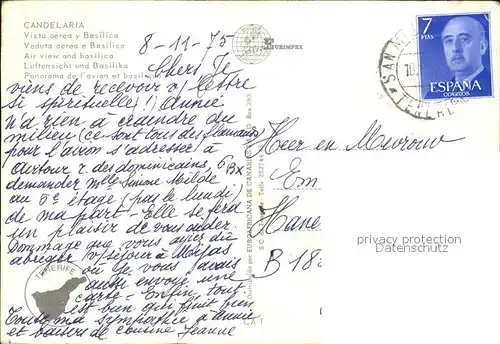 CANDELARIA
Vista aérea y Basílica
Veduta aerea e Basilica
Air view and basilica
Luftansicht und Basilika
Panorama de l'avion et basilique
8-11-75
EURIMPEX
7
PTAS
ESPAÑA
CORREOS
Chers Je
viens de recevoir v/ lettre
si spirituelle! Annie
n'a rien à craindre du
milieu (ce sont tous des flamands)
pour l'avion s'adresser à
Airtour r. des dominicains, 6 Bx
demander Melle Simone Milde
au 5e étage (pas le lundi)
de ma part - Elle se fera
un plaisir de vous aider.
Dommage que vous ayez dû
abréger v/séjour à
où je vous avais
aussi envoyé une
carte - Enfin, tout
est bien qui finit bien
Toute ma sympathie à Annie
et baisers de cousine Jeanne
TENERIFE
Distribuida por EUROAFRICANA DE CANARIAS
S.C. de Tenerife
CA 1
Heer en Mevrouw
Em
Hane
B 18
privacy protection
Datenschutz